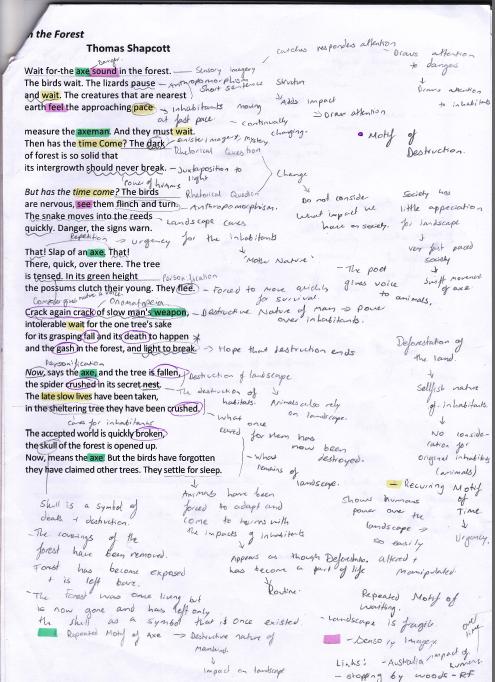 n the Forest
Thomas Shapcott
Wait for the axe sound in the forest.
The birds wait. The lizards pause
and wait. The creatures that are nearest
earth feel the approaching pace
measure the axeman. And they must wait.
Then has the time Come? The dark
of forest is so solid that
its intergrowth should never break.
But has the time come? The birds
are nervous, see them flinch and turn.
The snake moves into the reeds
quickly. Danger, the signs warn.
That! Slap of an axe. That!
There, quick, over there. The tree
is tensed. In its green height
the possums clutch their young. They flee.
Crack again crack of slow man's weapon,
intolerable wait for the one tree's sake
for its grasping fall and its death to happen
and the gash in the forest, and light to break.
Now, says the axe, and the tree is fallen,
the spider crushed in its secret nest.
The late slow lives have been taken,
in the sheltering tree they have been crushed.
The accepted world is quickly broken,
the skull of the forest is opened up.
Now, means the axe But the birds have forgotten
they have claimed other trees. They settle for sleep.
Danger
Sensory Imagery
Anthropomorphism
Short sentence
Structure
Adds impact
Draw attention
catches responders attention
Draws attention
to dangers
Draws attention
to inhabitants
Inhabitants moving
at fast pace
continually
changing.
Motif of
Destruction.
sinister imagery, mystery
Rhetorical Question
Juxtaposition to
light
Power of humans
Rhetorical Question
Anthropomorphism.
Change
Do not consider
what impact we
have on society.
Society has
little appreciation
for landscape
very fast paced
society
swift movement
of axe.
Landscape caves
Repetition → urgency for the inhabitants
"Mother Nature"
- The poet
gives voice
to animals,
Personification
Forced to move quickly
for survival.
Onomatopoeia
Destructive Nature of man → Power
over inhabitants.
Hope that destruction ends
Deforestation of
the land
Selfish nature
of inhabitants.
No conside-
ration for
original inhabitants
(animals)
Personification
Destruction of landscape
The destruction of
habitats.
Animals also rely
on landscape.
What once
for them has
now been
destroyed.
- What
remains of
landscape.
cares for inhabitants
Recurring Motif
of
Time
Urgency.
Shows humans
power over the
landscape →
so easily
altered +
manipulated.
Animals have been
forced to adapt and
come to terms with
the impacts of inhabitants
Appears as though Deforestation
has become a part of life
Routine.
Skull is a symbol of
death + destruction.
- The coverings of the
forest have been removed.
Forest has become exposed
+ is left bare.
- The forest was once living but
is now gone and has left only
the skull as a symbol that is once existed.
Repeated Motif of Axe → Destructive nature of
Mankind.
Impact on landscape
Repeated Motif of
waiting.
- Landscape is fragile
- Sensory Imagery
over time
Links: - Australia/impact of
humans
- stopping by woods - RF